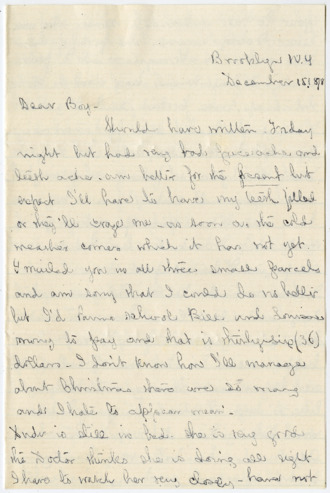 Brooklyn N.Y
December 15! 
Dear Boy-
Should have written Friday
night but had very bad face ache and
teeth ache. am better for the present but
expect I'll have to have my teeth filled
or they'll craze me - as soon as the cold
weather comes which it has not yet.
I mailed you in all three small parcels
and am sorry that I could do no better
but I'd school Bill and
money to pay and that is thirty six (36)
dollars - I don't know how I'll manage
about Christmas there are so many
and I hate to appear mean.
is still in bed she is very good
the Doctor thinks she is doing all right
I have to watch her very closely - have not